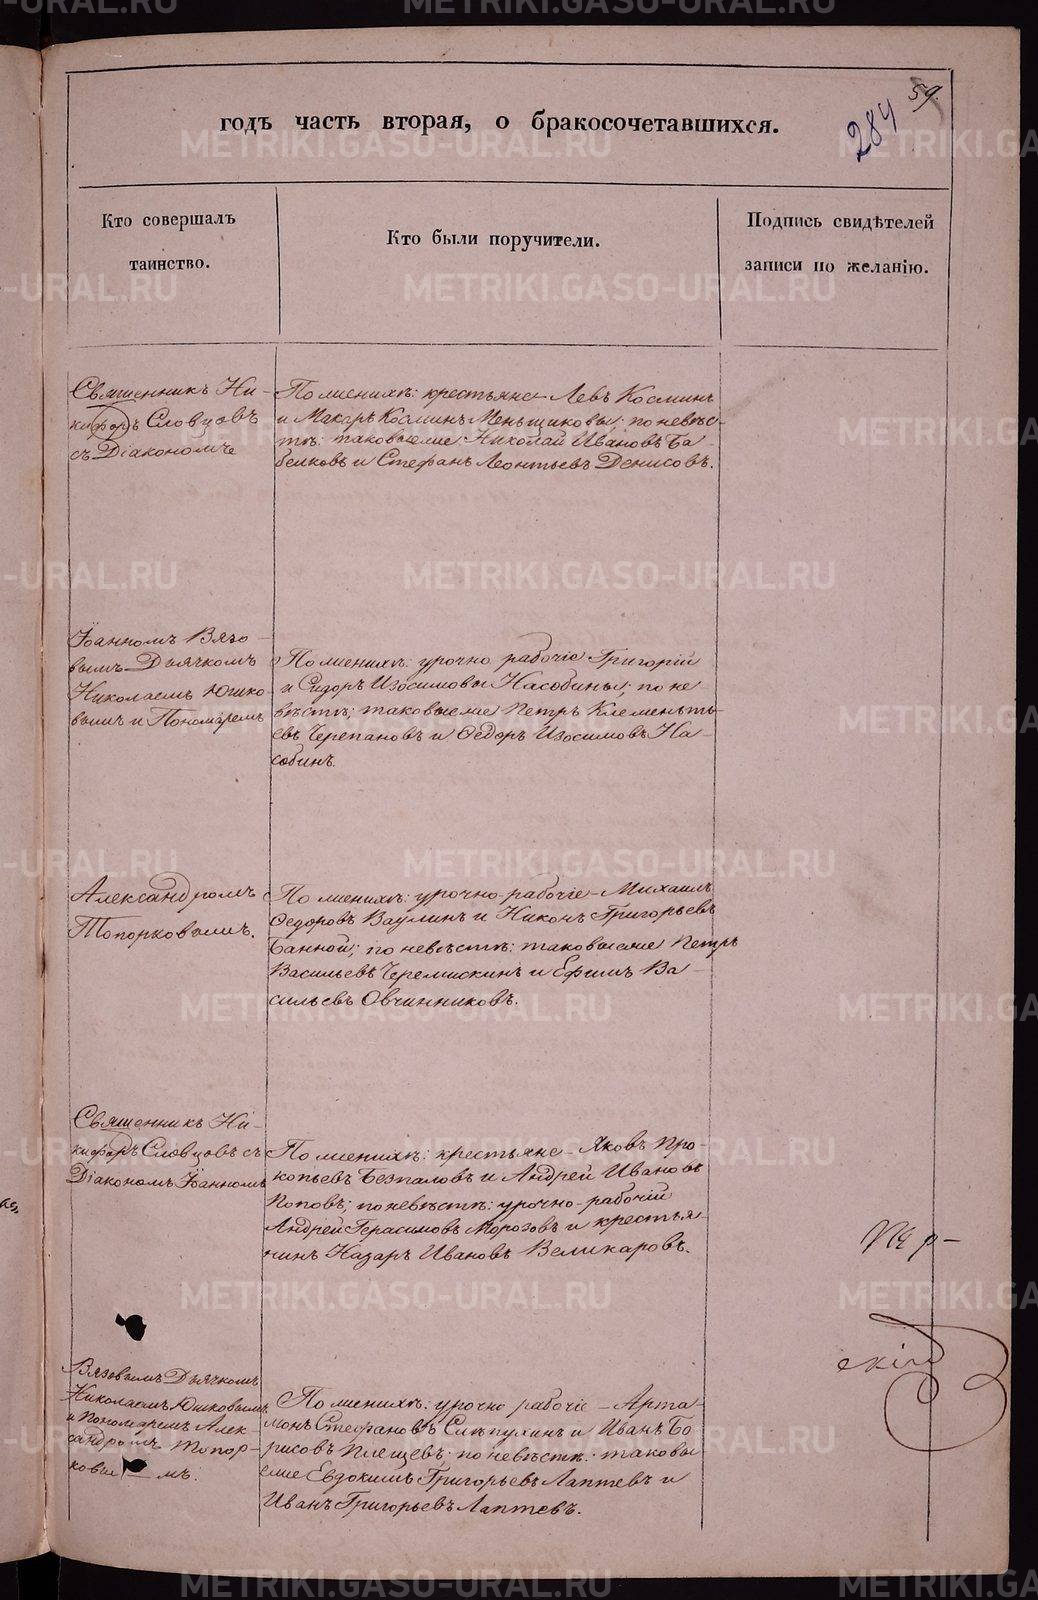 59.
284
годъ часть вторая, о бракосочетавшихся.
Кто совершалъ
таинство.
Кто были поручители.
Подпись свидѣтелей
записи по желанію.
Священникъ Ни-
кифоръ Словцовъ
съ Діакономъ
По женихѣ: крестьяне Левъ Косминъ
и Макаръ Косминъ Меньщиковы; по невѣс-
тѣ: таковыеже Николай Ивановъ Ба-
бенковъ и Стефанъ Леонтьевъ Денисовъ.
Іоанномъ Вязо-
вымъ Дьячкомъ
Николаемъ Юшко-
вымъ и Пономаремъ
По женихѣ: урочно рабочіе Григорій
и Сидоръ Изосимовы Насобины; по не-
вѣстѣ; таковыеже Петръ Клементь-
евъ Черепановъ и Ѳедоръ Изосимовъ На-
собинъ.
Александромъ
Топорковымъ.
По женихѣ: урочно-рабочіе - Михаилъ
Ѳедоровъ Ваулинъ и Никонъ Григорьевъ
Банной; по невѣстѣ: таковыеже Петръ
Васильевъ Черемискинъ и Ефимъ Ва-
сильевъ Овчинниковъ.
Священникъ Ни-
кифоръ Словцовъ съ
Діакономъ Іоанномъ
По женихѣ: крестьяне - Яковъ Про-
копьевъ Безпаловъ и Андрей Ивановъ
Поповъ; по невѣстѣ: урочно-рабочій
Андрей Герасимовъ Морозовъ и крестья-
нинъ Назаръ Ивановъ Великаровъ.
Вязовымъ Дьячкомъ
Николаемъ Юшковымъ
и Пономаремъ Алек-
сандромъ Топор-
ковы - мъ.
По женихѣ: урочно рабочіе - Арта-
монъ Стефановъ Слѣпухинъ и Иванъ Бо-
рисовъ Плещевъ; по невѣстѣ: таковы
еже Евдокимъ Григорьевъ Лаптевъ и
Иванъ Григорьевъ Лаптевъ.
METRIKI.GASO-URAL.RU